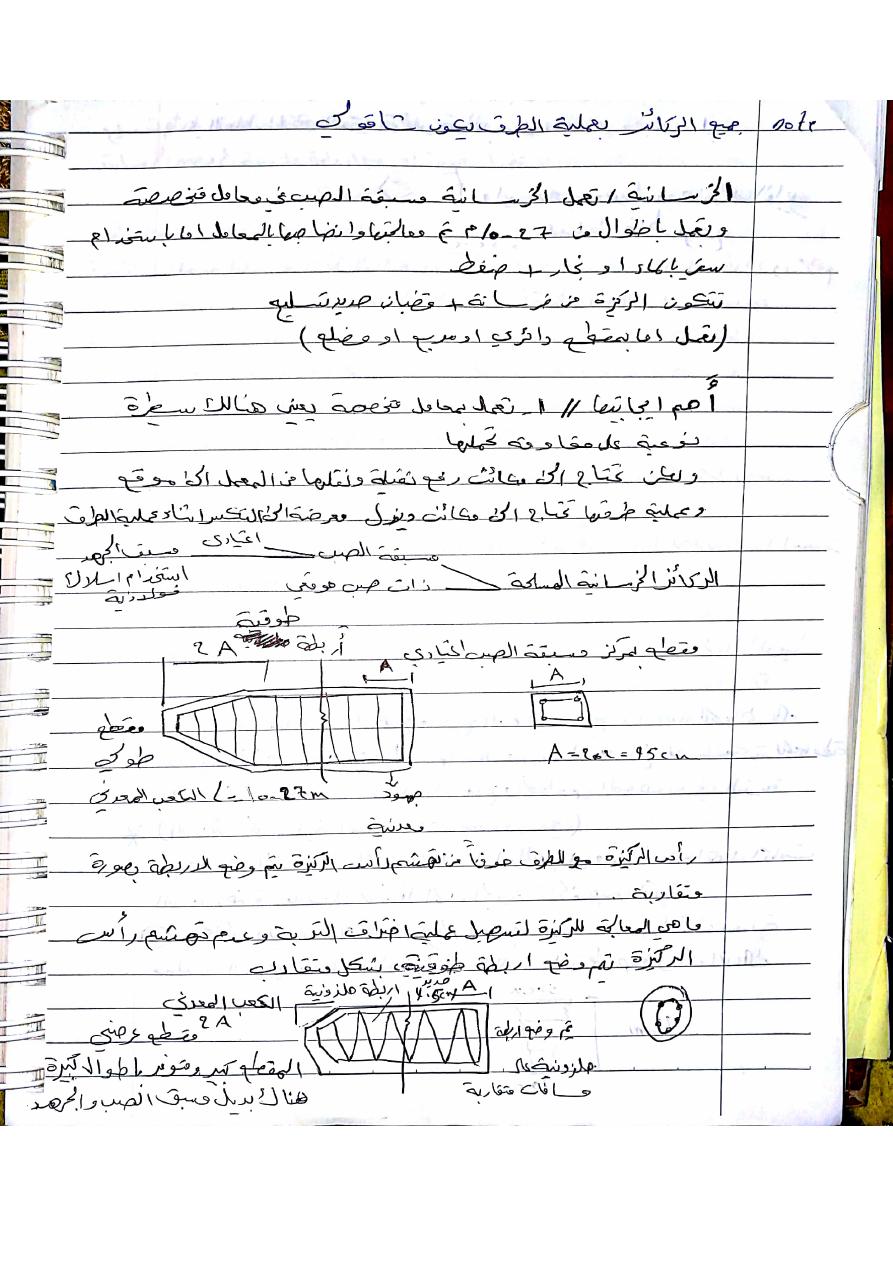 note جميع الركائز بعملية الطرق يكون شاقولي
الخرسانية / تعمل الخرسانية مسبقة الصب في معامل متخصصة
وتعمل باطوال من 27-10م تم معالجتها وانضاجها بالمعامل اما باستخدام
سقي بالماء او بخار + ضغط
تتكون الركيزة من خرسانة + قضبان حديد تسليح
(تعمل اما بمقطع دائري او مربع او مضلع)
أهم ايجابيتها // 1- تعمل بمعامل متخصصة يعني هنالك سيطرة
نوعية على مقاومته تحملها
ولكن تحتاج الى مكائن رفع ثقيلة ونقلها من المعمل الى موقع
وعملية طرقها تحتاج الى مكائن ويزول معرضة الى التكسر اثناء عملية الطرق
الركائز الخرسانية المسلحة
مسبقة الصب
اعتيادي
مسبق الجهد
ذات صب موقعي
استخدام اسلاك
فولاذية
مقطع بمركز مسبقة الصب اعتيادي
أربطة
طوقية
2A
A
A
مقطع
طولي
A=20=45cm
الكعب المعدني L=10-27m
معدنية
رأس الركيزة للطرق خوفاً من تهشم رأس الركيزة يتم وضع الاربطة بصورة
متقاربة
ما هي المعالجة للركيزة لتسهيل عملية اختراق التربة وعدم تهشم رأس
الركيزة تم وضع اربطة طوقية بشكل متقارب
الكعب المعدني
اربطة حلزونية
حديد
A
2A
مقطع عرضي
تم وضع اربطة
حلزونية على
مسافات متقاربة
المقطع كبير ومتوفر باطوال كبيرة
هناك بديل مسبق الصب والجهد